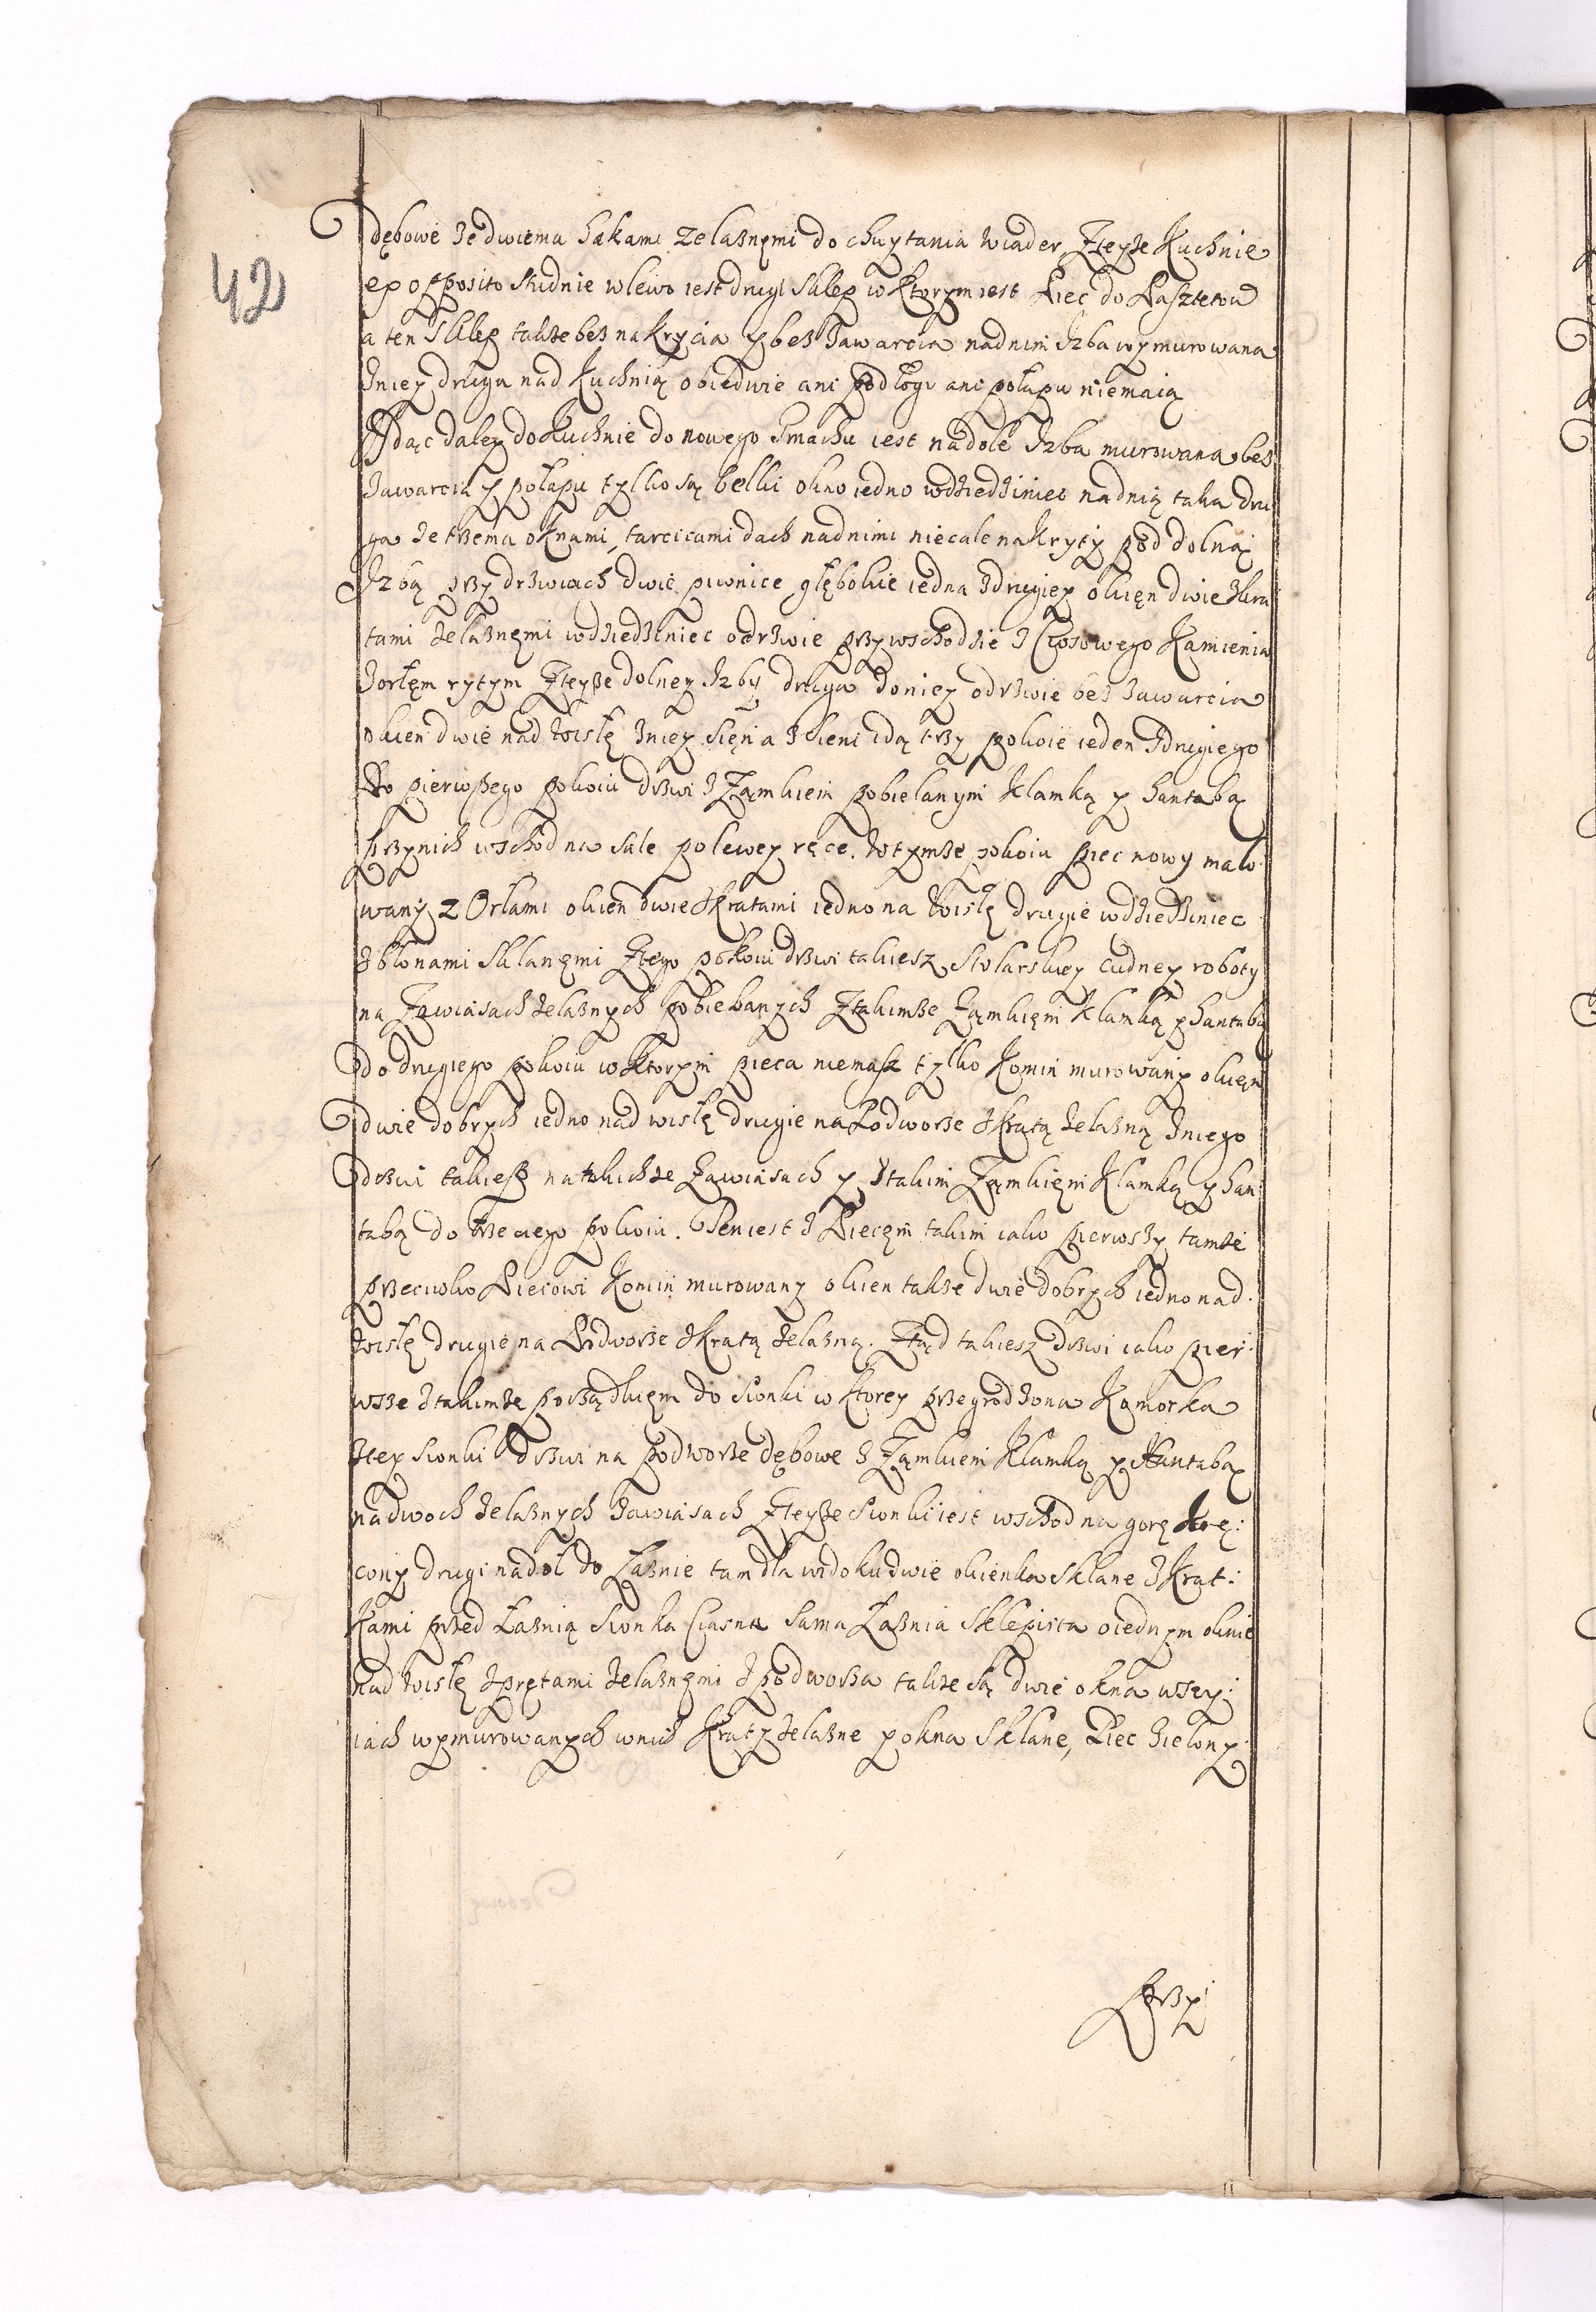 42
dębowe ze dwiema hakami zelaznęmi do chwytania wiader, Zteysze Kuchnie
ex opposito studnie wlewo iest drugi sklep wktorym iest Piec do Pasztetow
a ten sklep takze bez nakrycia y bez zawarcia nadnim Izba wymurowana
zniey druga nad Kuchnią obiedwie ani podłogi ani połapu niemaią
Jdąc daley do Kuchnie do nowego Gmachu iest nadole Izba murowana bez
zawarcia y połapu tylko są belki okno iedno wdziedziniec nadnią taka dru
ga ze trzema oknami, tarcicami dach nadnimi niecale nakryty pod dolną
Izbą przy drzwiach dwie piwnice głębokie iedna zdrugiey okięn dwie zkra
tami zelaznęmi wdziedziniec odrzwie przy wschodzie z Ciosowego Kamienia
zorłęm rytym Zteysze dolney Izby druga doniey odrzwie bez zawarcia
okien dwie nad Wisłę zniey Sięń a z sieni idą trzy pokoie ieden zdrugiego
Do pierwszego pokoiu drzwi z Zamkiem pobielanym klamką y hantabą
przynich wschod na sale polewey ręce. Wtymze pokoiu piec nowy malo:
wany z Orłami okien dwie zkratami iedno na Wisłę drugie wdziedziniec
zbłonami sklanęmi Ztego pokoiu drzwi takiesz stolarskiey cudney roboty
na Zawiasach zelaznych pobielanych Ztakimze Zamkięm klamką y hantabą
do drugiego pokoiu wktorym pieca niemasz tylko Komin murowany okięn
dwie dobrych iedno nad wisłę drugie na Podworze zkratą zelazną Zniego
drzwi takiesz natakichze Zawiasach y ztakim Zamkięm Klamką y han:
tabą do trzeciego pokoiu. Ten iest z Piecęm takim iako pierwszy tamze
przeciwko Piecowi Komin murowany okien takze dwie dobrych iedno nad
Wisłę drugie na Podworze zkratą zelazną. Ztąd takiesz drzwi iako pier:
wsze ztakimze porządkięm do sionki wktorey przegrodzona Komorka
ztey sionki drzwi na podworze dębowe z Zamkiem Klamką y Hantabą
nadwoch zelaznych zawiasach Zteysze sionki iest wschod na gorę krę:
cony drugi nadol do Łaznie tam dla widoku dwie okienka sklane z Krat:
kami przed Łaznią sionka Ciasna sama Łaznia sklepista oiednym oknie
nad Wisłę zprętami zelaznęmi zpodworza takze są dwie okna wszy:
iach wymurowanych wnich Kraty zelazne y okna sklane, Piec zielony
Przy: